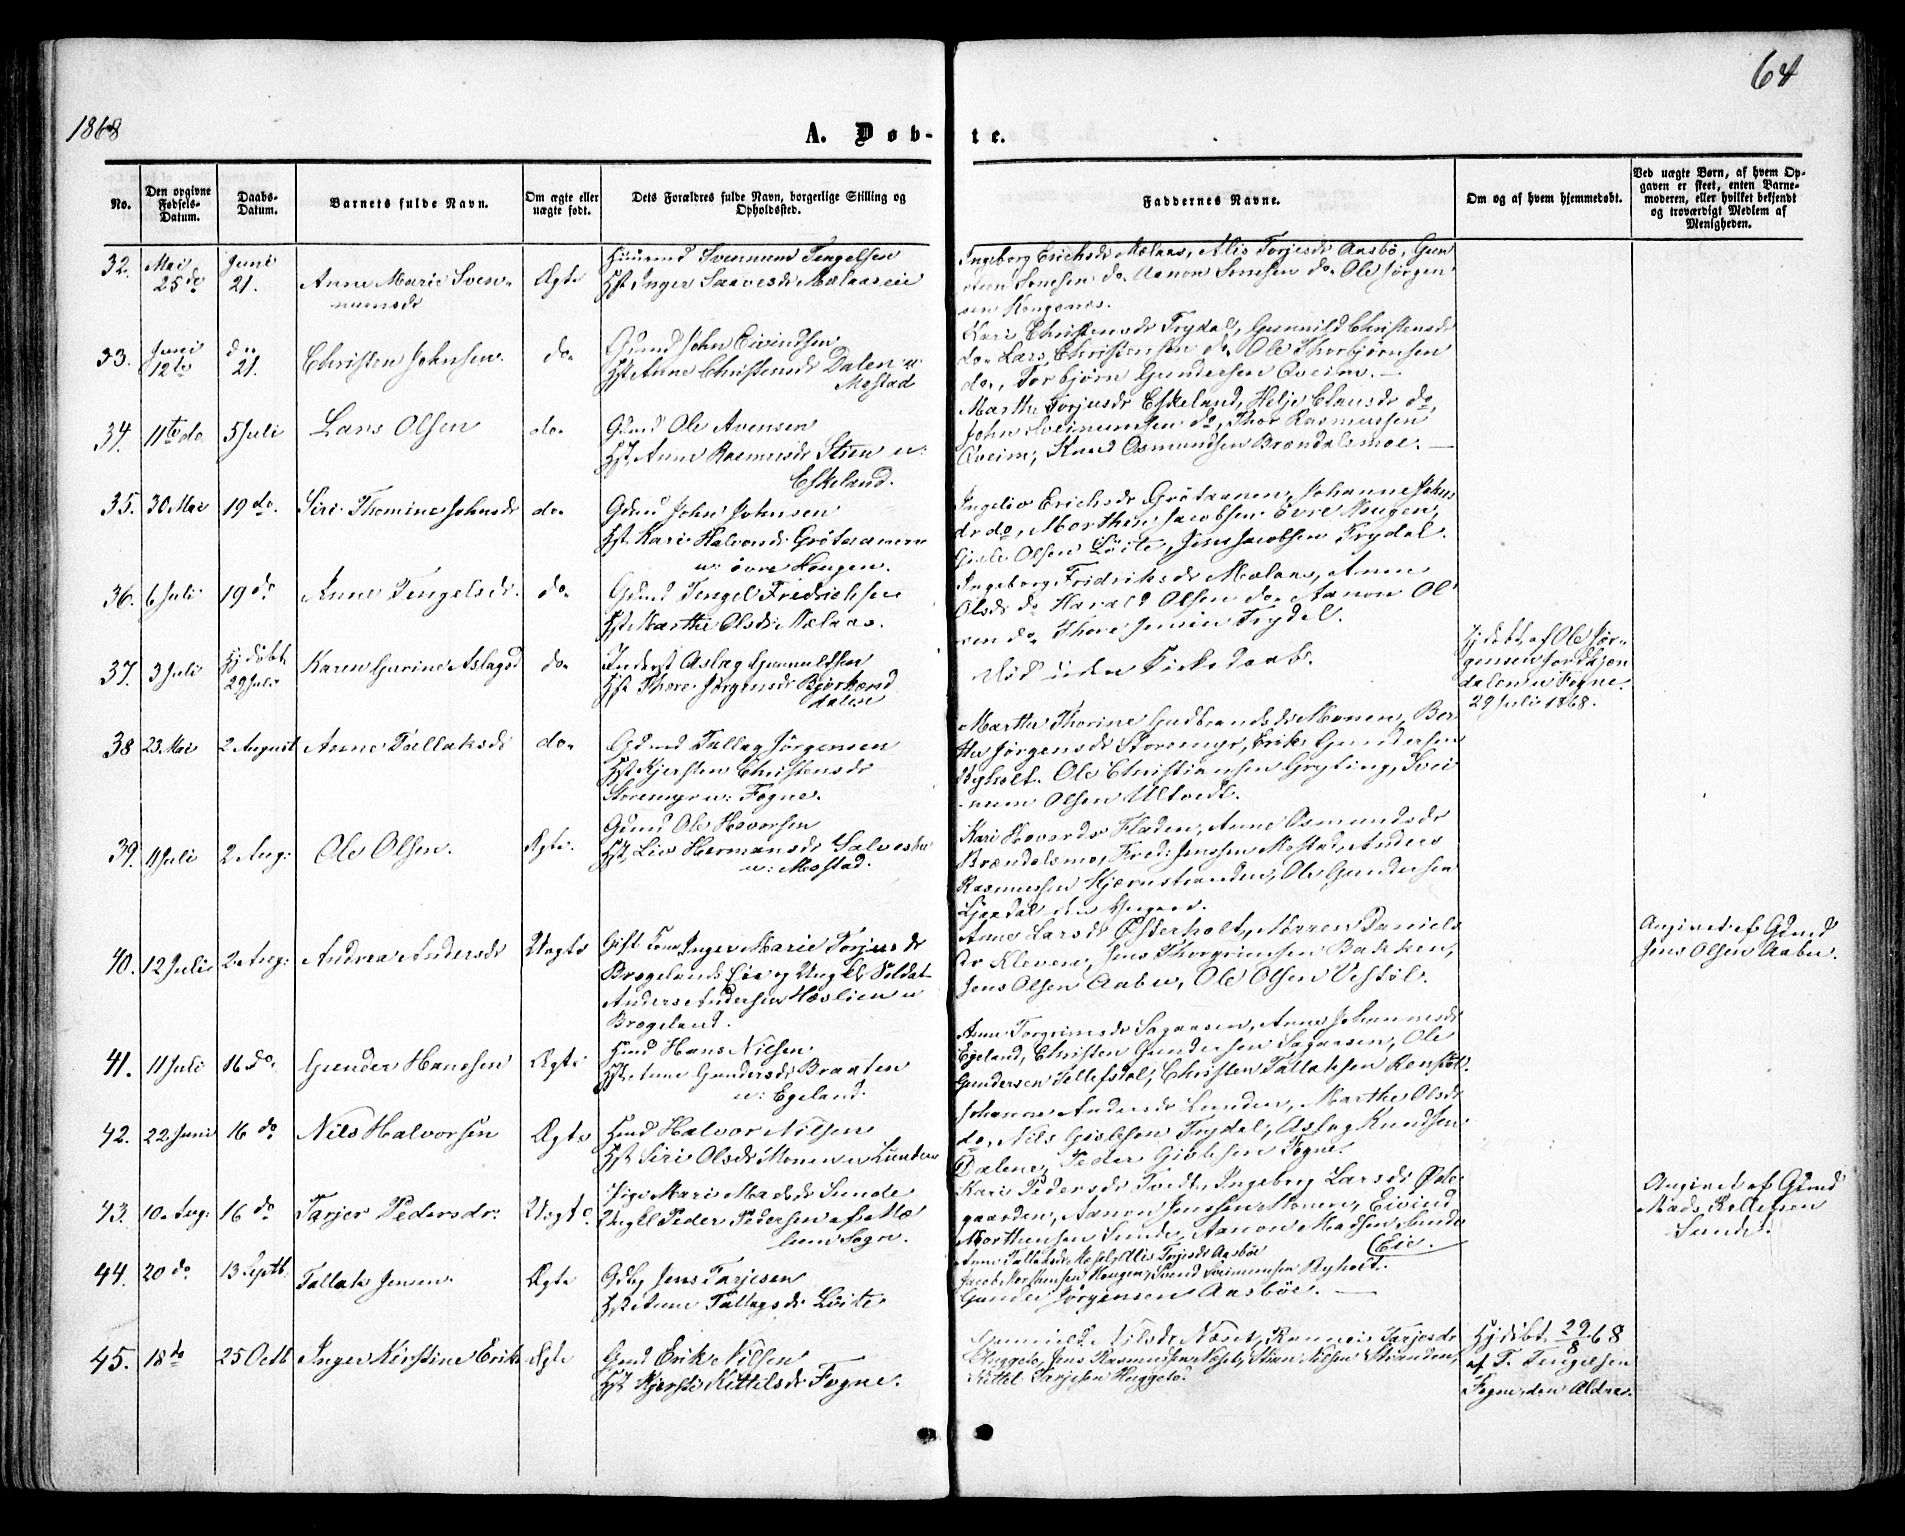 64
1868
A. Døb-
te.
No.
Den opgivne
Fødsels-
Datum.
Daabs-
Datum.
Barnets fulde Navn.
Om ægte eller
uægte født.
Dets Forældres fulde Navn, borgerlige Stilling og
Opholdssted.
Faddernes Navne.
Om og af hvem hjemmedøbt.
Ved uægte Børn, af hvem Op-
gaven er skeet, enten Barne-
moderen, eller hvilket bekjendt
og troværdigt Medlem af
Menigheden.
32.
Mai
25de
Juni
21.
Anne Marie Sven-
numsdr
Ægte
Svennum Tengelsen
Hst Inger Saavesdr Mælaaseie
Ingeborg Erichsdr Mælaas, Alis Torjesdr Aasbø, Gun
do Aanon do Ole Jørgen
sen
33.
Juni
12te
do
21.
Christen Johnsen.
do
Gmd John Eivindsen
Hst Anne Christensdr Dalen u
Mostad
Kari Christensdr Frydal, Gunnild Christensdr
do Lars Christensen do Ole Thorbjørnsen
do, Torbjørn Gundersen Qveim.
34.
11te do
5 Juli
Lars Olsen
do
Gmd Ole Avensen
Hst Anne Rasmusdr Steen u:
Eskeland.
Marthe Torjusdr Eskeland, Helje Clausdr do,
John Sveinumsen do, Thor Rasmussen
Qveim, Knud Osmundsen Brændalsmoe.
35.
30 Mai
19 do.
Siri Thomine Johnsdr
do
Gdmd John Johnsen
Hst Kari Halvorsdr Grötaaenen
u: övre Hougen.
Ingelev Erichsdr Grötaaenen, Johanne Johns
dr do, Morthen Jacobsen Övre Hougen,
Olsen Löite, Jens Jacobsen Frydal.
36.
6 Juli
19 do
Anne Tengelsdr.
do
Gdmd Tengel Fredrichsen
Hst Marthe Olsdr Mælaas.
Ingeborg Fridriksdr Mælaas, Anne
Olsdr do Harald Olsen do Aanon Ol
sen do Thore Jensen Frydal.
37.
3 Juli
Hj døbt
29 Juli
Karen Gurine Aslagsd
do
Inderst Aslag Gunnuldsen
Hst Thore Jørgensdr Bjørkend
dalen
Död uden Kirkedaab.
Hj döbt af Ole Jør-
gensen
dalen u Fogne.
29 Juli 1868.
38
23 Mai
2 August
Anne Tallaksdr
do
Gdmd Tallag Jørgensen
Hst Kjersten Christensdr
Storemyr u: Fogne.
Marthe Thorine Gudbrandsdr Monen, Ber
the Jørgensdr Storemyr, Erik Gundersen
Ryholt. Ole Christiansen Gryting, Svei
num Olsen Ultvedt.
39.
11 Juli
2 Aug:
Ole Olsen.
Ægte.
Gdmd Ole Havorsen
Hst Liv Hermansdr
u: Mostad.
Kari Hovardsdr Fladen, Anne Osmundsdr
Brændalsmo, Fred: Jenssen Mostad, Anders
Rasmussen Kjærnstranden, Ole Gundersen
den Yngere.
40.
12 Juli
2 Aug:
Andrea Andersdr
Uægte
Gift Kone Inger Marie Torjusdr
Brøgelands Eie og Ungkl Soldat
Anders Andersen Hæslien u
Brøgeland.
Anne Larsdr Østerholt, Maren Daniels
dr Kleven, Jens Thorgrimsen Bakken,
Jens Olsen Aabu, Ole Olsen Vestöl.
Angivet af Gdmd
Jens Olsen Aabu.
41.
11 Juli
16 do.
Gunder Hanssen
Ægte
Hmd Hans Nielsen
Hst Anne Gundersdr Braaten
u: Egeland.
Anne Torgrimsdr Sagaasen, Anne Johannesdr
Egeland, Christen Gundersen Sagaasen, Ole
Gundersen Tellefsdal, Christen Tallaksen
42.
22 Juni
16 do
Nils Halvorsen
Ægte
Hmd Halvor Nilsen
Hst Siri Olsdr Monen u Lunden
Johanne Andersdr Lunden, Marthe Olsdr
do, Nils Frydal, Aslag Knudsen
Dalene, Peder Fogne.
43.
10 Aug:
16 do
Tarjer Pedersdr:
Uægte
Pige Mari Madsdr Sunde
Ungkl Peder Pedersen af
Sogn.
Kari Pedersdr Tvedt, Ingeborg Larsdr Øde-
gaarden, Aanon Jenssen Monen, Eivind
Morthensen Sunde, Aanon Madsen Sunde
Eie.
Angivet af Gdmd
Mads
Sunde.
44.
20 do
13 Septb
Tallak Jensen
Ægte
Gdbg Jens Tarjesen
Hst Anne Tallagsdr Löite
Anne Tallaksdr Alis Torjesdr Aasbøe
Jacob Morthensen Hougen, Svend Sveinumsen Ryholt.
Gunder Jørgensen Aasbøe.
45.
18 do
25 Octb
Inger Kirstine Eriks
Ægte
Gmd Erik Nilsen
Hst Kjersti Kittilsdr Fogne.
Gunnild Nilsdr Næset, Tarjesdr
Huggeto, Jens Rasmussen Næset, Stian Nilsen Stranden,
Kittel Tarjesen Huggeto.
Hj döbt 29/8 68
af T. Tengelsen
Fogne, den Ældre.